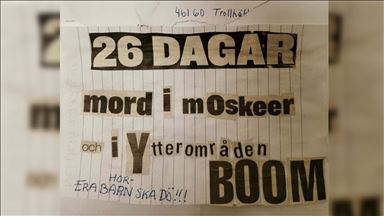 46160 Trollhät
26 DAGAR
mord i mOskeer
och i Ytterområden
BOOM
HOR-
ERA BARN SKA DÖ!!!